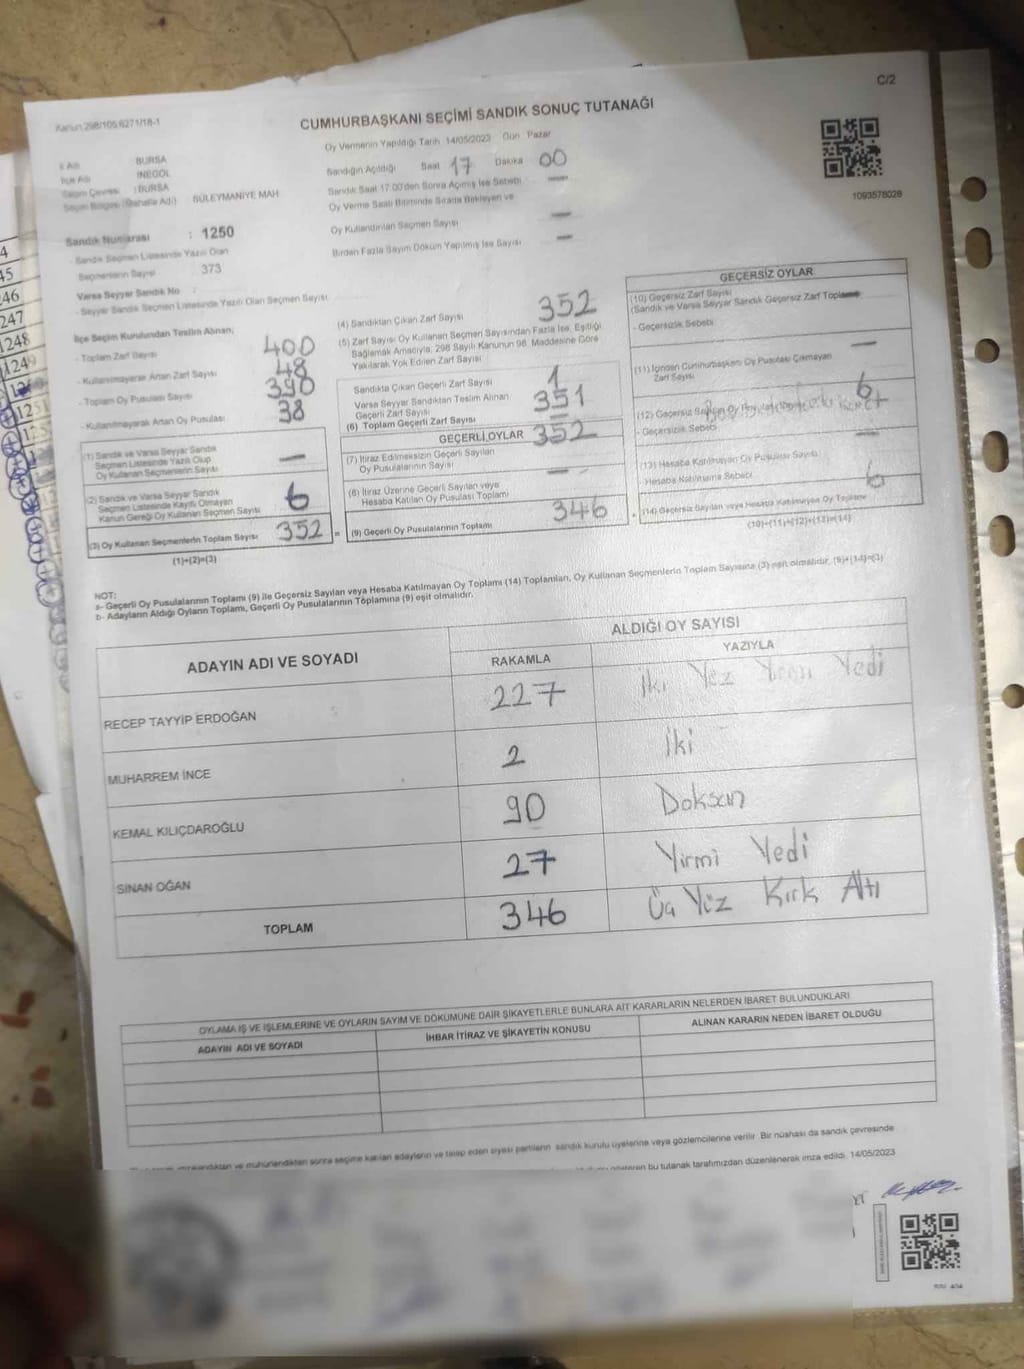 C/2
Kanun 298/105 6271/18-1
CUMHURBAŞKANI SEÇİMİ SANDIK SONUÇ TUTANAĞI
Oy Vermenin Yapıldığı Tarih 14/05/2023 Gün Pazar
İl Adı BURSA
İlçe Adı İNEGÖL
Seçim Çevresi : BURSA
Seçim Bölgesi (Mahalle Adı) SÜLEYMANİYE MAH
Sandığın Açıldığı Saat 17 Dakika 00
Sandık Saat 17.00'den Sonra Açılmış İse Sebebi —
Oy Verme Saati Bitiminde Sırada Bekleyen ve
Oy Kullandırılan Seçmen Sayısı —
Birden Fazla Sayım Döküm Yapılmış İse Sayısı —
1093578028
Sandık Numarası : 1250
- Sandık Seçmen Listesinde Yazılı Olan
Seçmenlerin Sayısı 373
Varsa Seyyar Sandık No :
- Seyyar Sandık Seçmen Listesinde Yazılı Olan Seçmen Sayısı
İlçe Seçim Kurulundan Teslim Alınan;
- Toplam Zarf Sayısı 400
- Kullanılmayarak Artan Zarf Sayısı 48
- Toplam Oy Pusulası Sayısı 390
- Kullanılmayarak Artan Oy Pusulası 38
(1) Sandık ve Varsa Seyyar Sandık
Seçmen Listesinde Yazılı Olup
Oy Kullanan Seçmenlerin Sayısı —
(2) Sandık ve Varsa Seyyar Sandık
Seçmen Listesinde Kayıtlı Olmayan
Kanun Gereği Oy Kullanan Seçmen Sayısı 6
(3) Oy Kullanan Seçmenlerin Toplam Sayısı 352
(1)+(2)=(3)
(4) Sandıktan Çıkan Zarf Sayısı 352
(5) Zarf Sayısı Oy Kullanan Seçmen Sayısından Fazla İse, Eşitliği
Sağlamak Amacıyla, 298 Sayılı Kanunun 98. Maddesine Göre
Yakılarak Yok Edilen Zarf Sayısı
Sandıkta Çıkan Geçerli Zarf Sayısı 1
Varsa Seyyar Sandıktan Teslim Alınan
Geçerli Zarf Sayısı 351
(6) Toplam Geçerli Zarf Sayısı
GEÇERLİ OYLAR 352
(7) İtiraz Edilmeksizin Geçerli Sayılan
Oy Pusulalarının Sayısı
(8) İtiraz Üzerine Geçerli Sayılan veya
Hesaba Katılan Oy Pusulası Toplamı —
(9) Geçerli Oy Pusulalarının Toplamı 346
GEÇERSİZ OYLAR
(10) Geçersiz Zarf Sayısı
(Sandık ve Varsa Seyyar Sandık Geçersiz Zarf Toplamı)
- Geçersizlik Sebebi
(11) İçinden Cumhurbaşkanı Oy Pusulası Çıkmayan
Zarf Sayısı —
(12) Geçersiz Sayılan Oy 6
- Geçersizlik Sebebi
(13) Hesaba Katılmayan Oy Pusulası Sayısı —
Hesaba Katılmama Sebebi
(14) Geçersiz Sayılan veya Hesaba Katılmayan Oy Toplamı 6
(10)+(11)+(12)+(13)=(14)
NOT:
a- Geçerli Oy Pusulalarının Toplamı (9) ile Geçersiz Sayılan veya Hesaba Katılmayan Oy Toplamı (14) Toplamları, Oy Kullanan Seçmenlerin Toplam Sayısına (3) eşit olmalıdır. (9)+(14)=(3)
b- Adayların Aldığı Oyların Toplamı, Geçerli Oy Pusulalarının Toplamına (9) eşit olmalıdır.
ADAYIN ADI VE SOYADI
ALDIĞI OY SAYISI
RAKAMLA YAZIYLA
RECEP TAYYİP ERDOĞAN 227 İki Yüz Yirmi Yedi
MUHARREM İNCE 2 İki
KEMAL KILIÇDAROĞLU 90 Doksan
SİNAN OĞAN 27 Yirmi Yedi
TOPLAM 346 Üç Yüz Kırk Altı
OYLAMA İŞ VE İŞLEMLERİNE VE OYLARIN SAYIM VE DÖKÜMÜNE DAİR ŞİKAYETLERLE BUNLARA AİT KARARLARIN NELERDEN İBARET BULUNDUKLARI
ADAYIN ADI VE SOYADI İHBAR İTİRAZ VE ŞİKAYETİN KONUSU ALINAN KARARIN NEDEN İBARET OLDUĞU
ve mühürlendikten sonra seçime katılan adayların ve talep eden siyasi partilerin sandık kurulu üyelerine veya gözlemcilerine verilir. Bir nüshası da sandık çevresinde
bu tutanak tarafımızdan düzenlenerek imza edildi. 14/05/2023